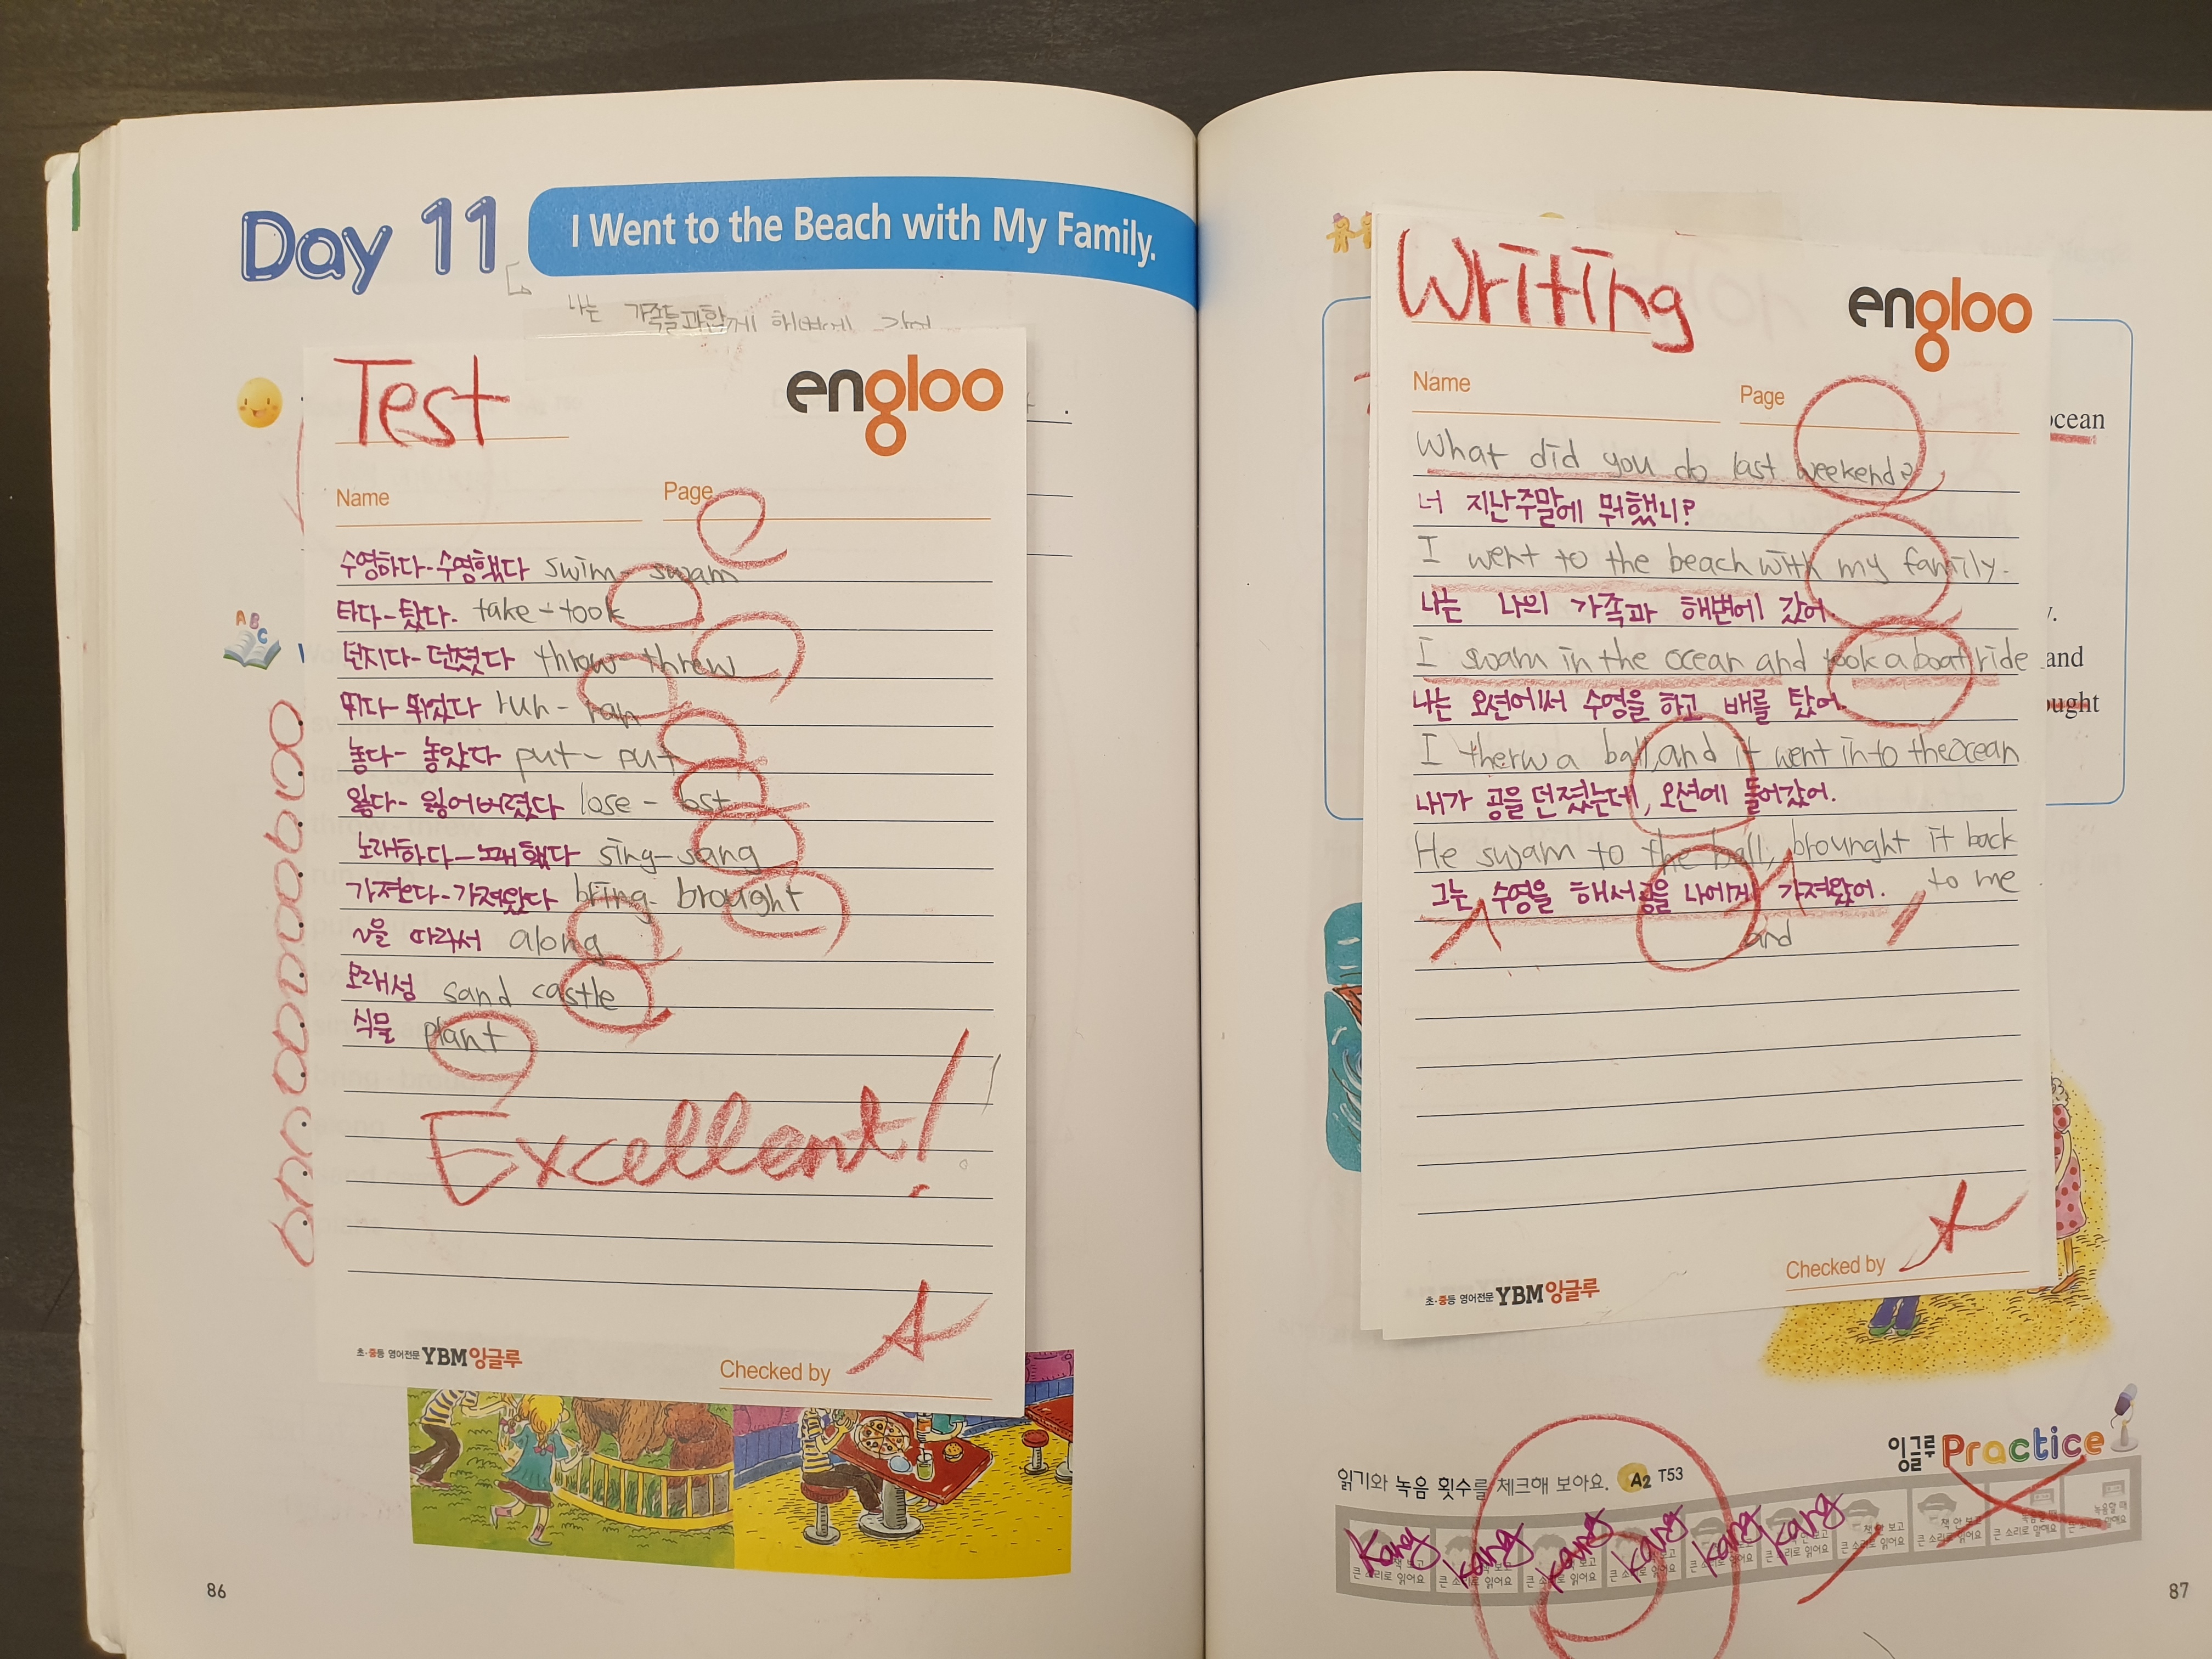 Day 11
I Went to the Beach with My Family.
나는 가족들과함께 해변에 갔어
Test
engloo
Name
Page
수영하다-수영했다 swim- swam
타다-탔다. take-took
던지다-던졌다 throw-threw
뛰다-뛰었다 run-ran
놓다-놓았다 put-put
잃다-잃어버렸다 lose-lost
노래하다-노래했다 sing-sang
가져오다-가져왔다 bring- brought
~을 따라서 along
모래성 sand castle
식물 plant
Excellent!
초·중등 영어전문 YBM잉글루
Checked by
86
Writing
engloo
Name
Page
What did you do last weekend?
너 지난주말에 뭐했니?
I went to the beach with my family.
나는 나의 가족과 해변에 갔어.
I swam in the ocean and took a boat ride
나는 오션에서 수영을 하고 배를 탔어.
I therw a ball, and it went into the ocean
내가 공을 던졌는데, 오션에 들어갔어.
He swam to the ball, brounght it back
그는 수영을 해서 공을 나에게 가져왔어. to me
and
초·중등 영어전문 YBM잉글루
Checked by
ocean
and
잉글루 Practice
읽기와 녹음 횟수를 체크해 보아요. A2 T53
Kang Kang Kang Kang Kang Kang
87